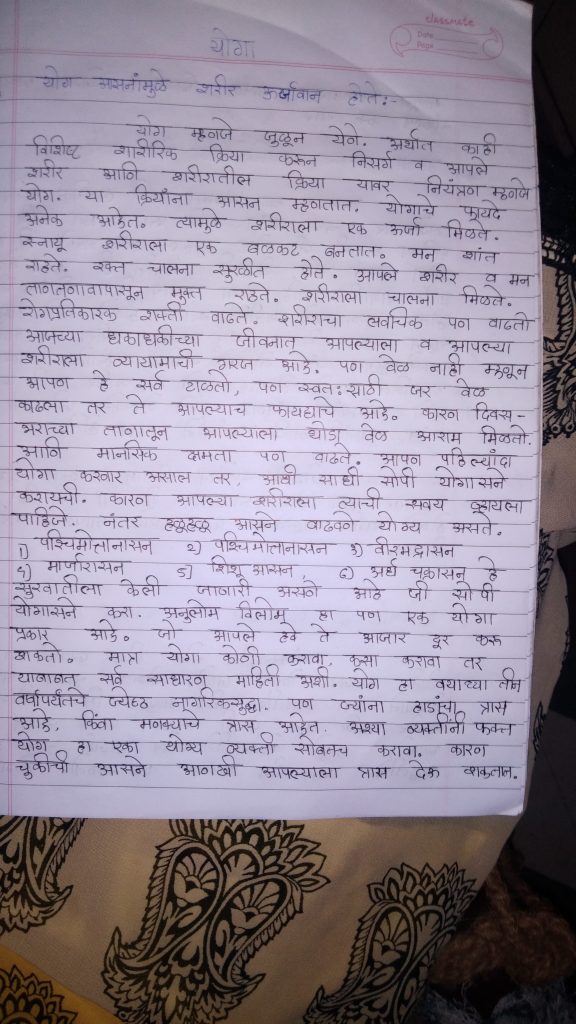 classmate
Date
Page
योगा
योग आसनांमुळे शरीर ऊर्जावान होते:-
योग म्हणजे जुळून येणे. अर्थात काही
विशिष्ट शारीरिक क्रिया करून निसर्ग व आपले
शरीर आणि शरीरातील क्रिया यावर नियंत्रण म्हणजे
योग. या क्रियांना आसन म्हणतात. योगाचे फायदे
अनेक आहेत. त्यामुळे शरीराला एक ऊर्जा मिळते.
स्नायू शरीराला एक बळकट बनतात. मन शांत
राहते. रक्त चालना सुरळीत होते. आपले शरीर व मन
ताणतणावापासून मुक्त राहते. शरीराला चालना मिळते.
रोगप्रतिकारक शक्ती वाढते. शरीराचा लवचिक पणा वाढतो
आजच्या धकाधकीच्या जीवनात आपल्याला व आपल्या
शरीराला व्यायामाची गरज आहे. पण वेळ नाही म्हणून
आपण हे सर्व टाळतो, पण स्वतःसाठी जर वेळ
काढला तर ते आपल्याच फायद्याचे आहे. कारण दिवस-
भराच्या ताणातून आपल्याला थोडा वेळ आराम मिळतो.
आणि मानसिक क्षमता पण वाढते. आपण पहिल्यांदा
योगा करणार असाल तर, आधी साधी सोपी योगासने
करायची. कारण आपल्या शरीराला त्याची सवय व्हायला
पाहिजे. नंतर हळूहळू आसने वाढवणे योग्य असते.
1) पश्चिमोत्तानासन 2) पश्चिमोत्तानासन 3) वीरभद्रासन
4) मार्जारासन 5) शिशू आसन, 6) अर्ध चक्रासन हे
सुरवातीला केली जाणारी असणे आहे जी सोपी
योगासने करा. अनुलोम विलोम हा पण एक योगा
प्रकार आहे. जो आपले हवे ते आजार दूर करू
शकतो. मात्र योगा कोणी करावा, कसा करावा तर
याबाबत सर्व साधारण माहिती अशी. योग हा वयाच्या तीन
वर्षापर्यंतचे ज्येष्ठ नागरिकसुद्धा. पण ज्यांना हाडांचा त्रास
आहे, किंवा मणक्याचे त्रास आहेत. अश्या व्यक्तींनी फक्त
योग हा एका योग्य व्यक्ती सोबतच करावा. कारण
चुकीची आसने आणखी आपल्याला त्रास देऊ शकतात.